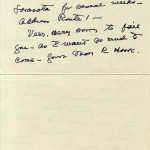 Sarasota for several weeks -
Address Route 1 -
Very, very sorry to fail
you - as I want so much to
come - Yours Thos R